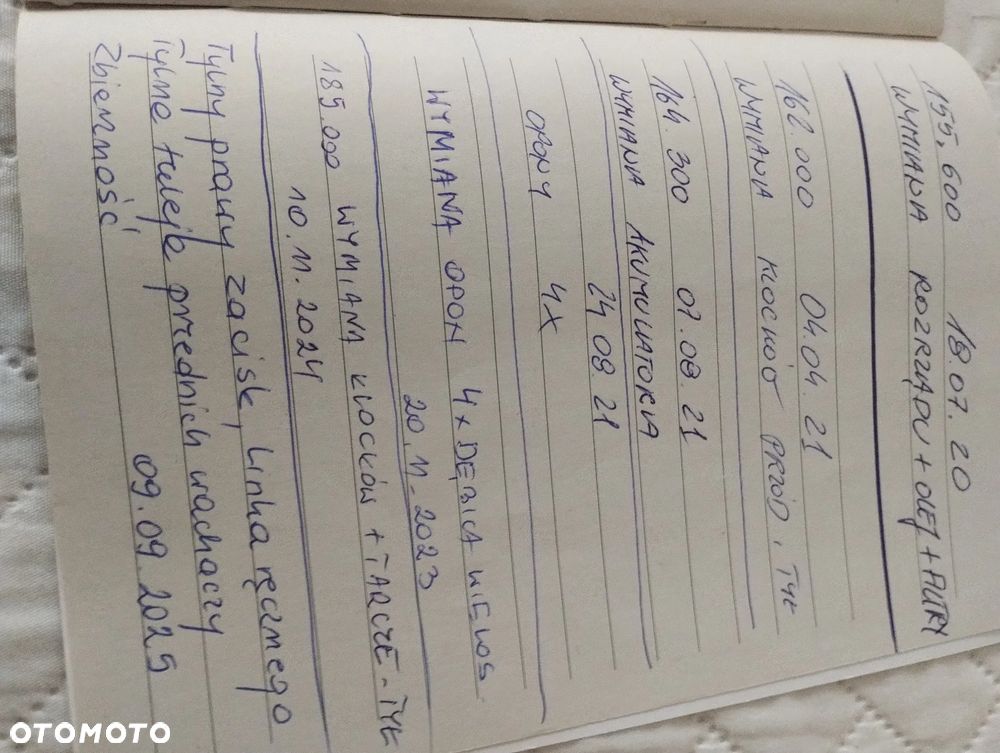 155.600 18.07.20
WYMIANA ROZRZĄDU + OLEJ + FILTRY
162.000 04.04.21
WYMIANA KLOCKÓW PRZÓD, TYŁ
164.300 07.08.21
WYMIANA AKUMULATORA
24.08.21
OPONY 4X
WYMIANA OPON 4x DĘBICA WIELOS.
20.11.2023
185.000 WYMIANA KLOCKÓW + TARCZE - TYŁ
10.11.2024
Tylny prawy zacisk, linka ręcznego
Tylne tuleje przednich wachaczy
Zbieżność 09.09.2025
OTOMOTO